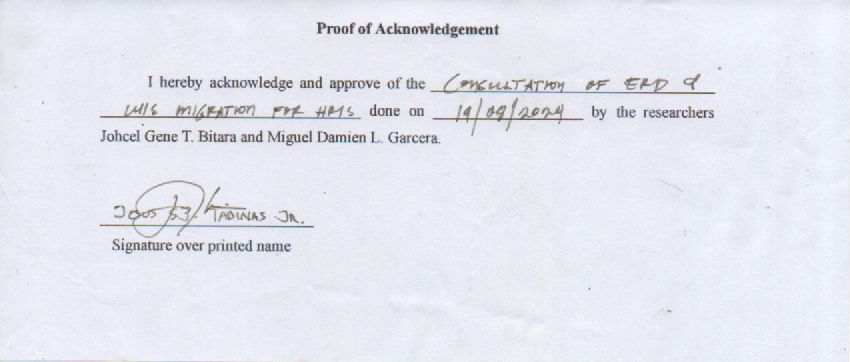 Proof of Acknowledgement
I hereby acknowledge and approve of the CONSULTATION OF ERD &
MIGRATION FOR HRIS done on 19/09/2024 by the researchers
Johcel Gene T. Bitara and Miguel Damien L. Garcera.
TADINAS JR.
Signature over printed name